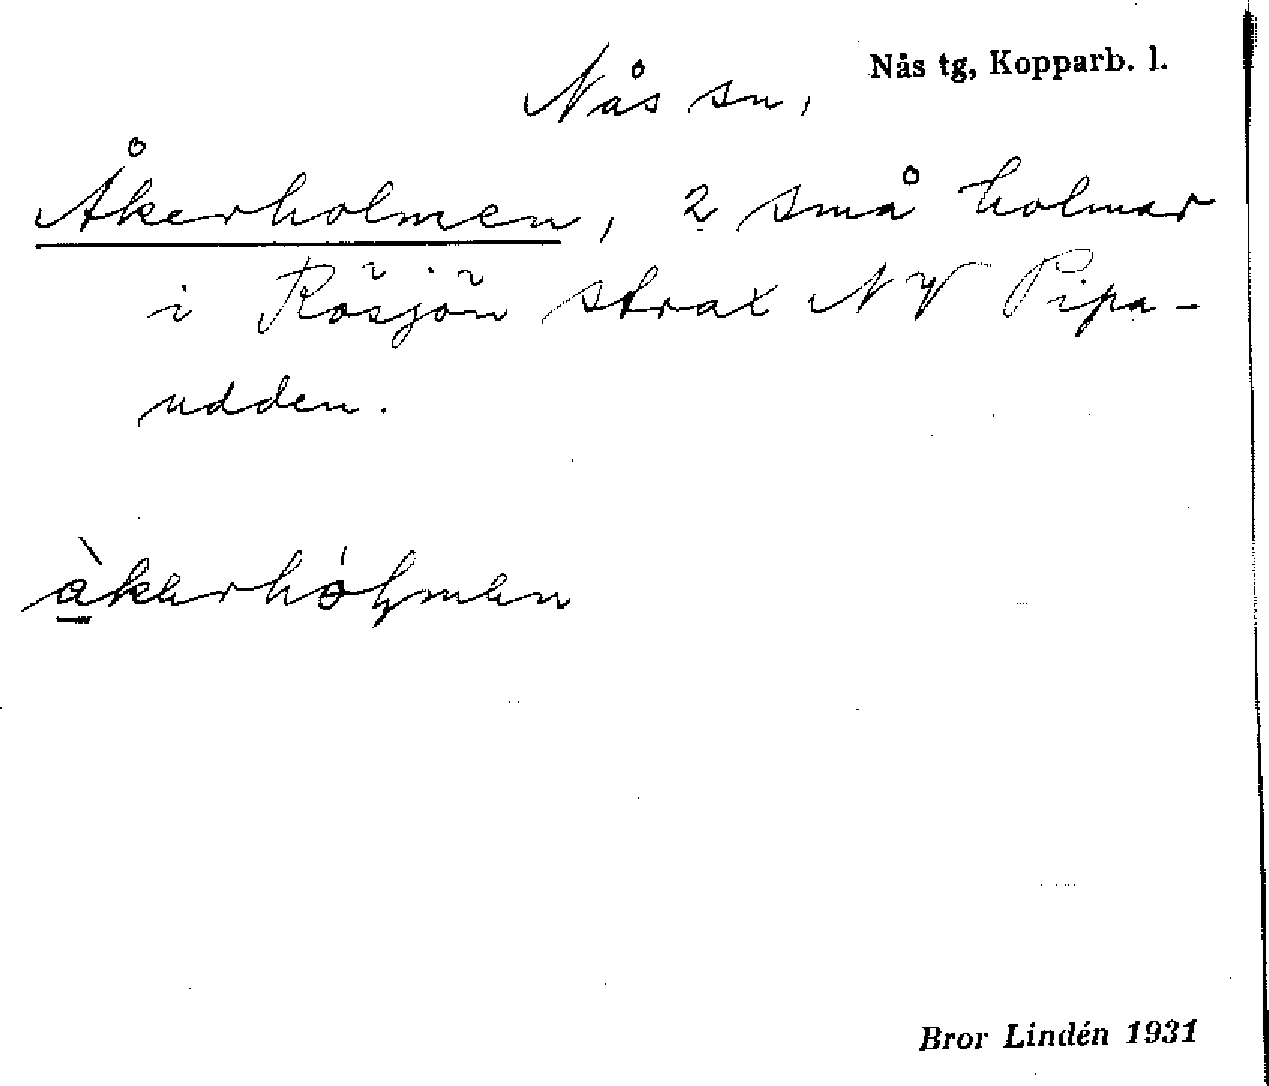 Nås tg, Kopparb. l.
Nås sn,
Åkerholmen, 2 små holmar
i Rösjön strax NV Pipa-
udden.
Bror Lindén 1931